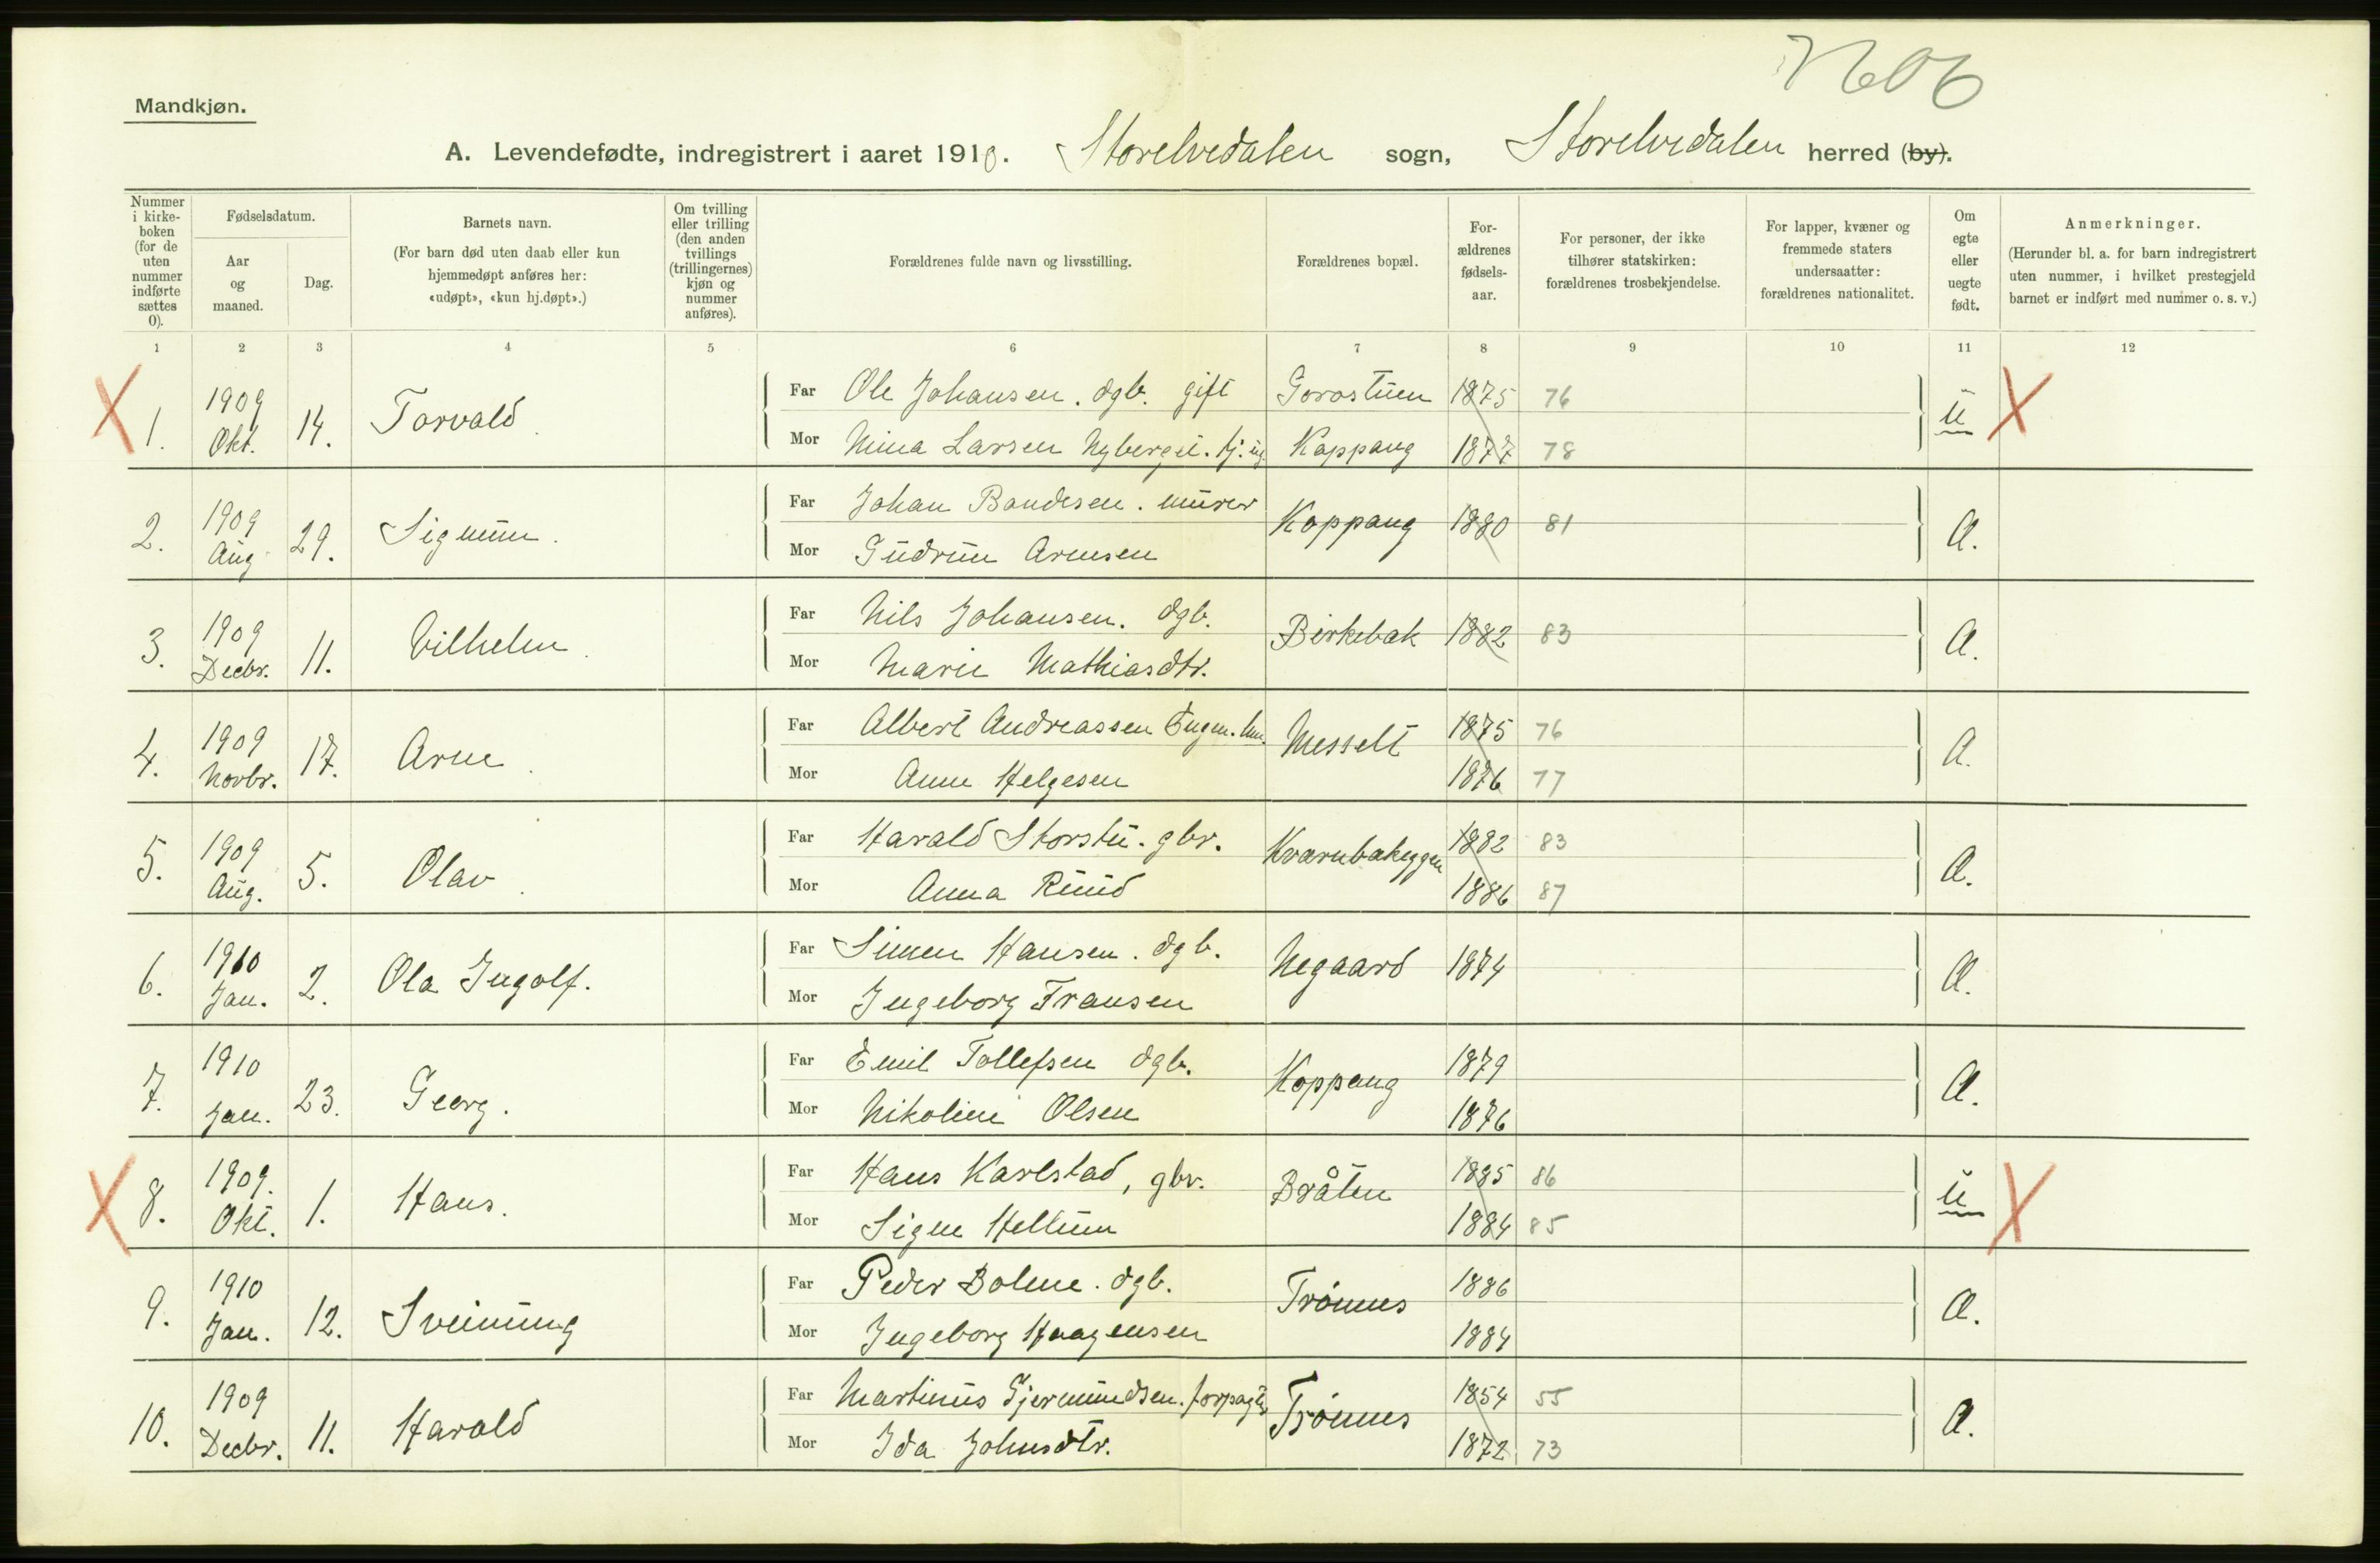 Mandkjøn.
A. Levendefødte, indregistrert i aaret 1910. Storelvedalen sogn, Storelvedalen herred (by).
Nummer i kirke-boken (for de uten nummer indførte sættes 0).
Fødselsdatum.
Aar og maaned.
Dag.
Barnets navn.
(For barn død uten daab eller kun hjemmedøpt anføres her: «udøpt», «kun hj.døpt».)
Om tvilling eller trilling (den anden tvillings (trillingernes) kjøn og nummer anføres).
Forældrenes fulde navn og livsstilling.
Forældrenes bopæl.
For-ældrenes fødsels-aar.
For personer, der ikke tilhører statskirken: forældrenes trosbekjendelse.
For lapper, kvæner og fremmede staters undersaatter: forældrenes nationalitet.
Om egte eller uegte født.
Anmerkninger.
(Herunder bl. a. for barn indregistrert uten nummer, i hvilket prestegjeld barnet er indført med nummer o. s. v.)
1 2 3 4 5 6 7 8 9 10 11 12
X 1. 1909 Okt. 14. Torvald. Far Ole Johansen. dgb. gift Gorostuen 1875 76 u X
Mor Nina Larsen Koppang 1877 78
2. 1909 Aug 29. Sigmun. Far Johan Bandesen. murer Koppang 1880 81 A.
Mor Gudrun Arnesen
3. 1909 Decbr. 11. Vilhelm. Far Nils Johansen. dgb. Birkebak 1882 83 A.
Mor Marie Mathiasdtr.
4. 1909 Novbr. 17. Arne. Far Albert Andreassen Messelt 1875 76 A.
Mor Anne Helgesen 1876 77
5. 1909 Aug. 5. Olav. Far Harald Storstu. gbr. Kvarnbakeggen 1882 83 A.
Mor Anna Ruud 1886 87
6. 1910 Jan. 2. Ola Ingolf. Far Simen Hansen. dgb. Negaard 1874 A.
Mor Ingeborg Fransen
7. 1910 Jan. 23. Georg. Far Emil Tollefsen dgb. Koppang 1879 A.
Mor Nikoline Olsen 1876
X 8. 1909. Okt. 1. Hans. Far Hans Karlstad, gbr. Bråten 1885 86 u X
Mor Signe Hellum 1884 85
9. 1910 Jan. 12. Sveinung Far Peder Bolme. dgb. Trønnes 1886 A.
Mor Ingeborg Haagensen 1884
10. 1909 Decbr. 11. Harald Far Martinus Gjermundsen. forpagter Trønnes 1854 55 A.
Mor Ida Johnsdtr. 1872 73